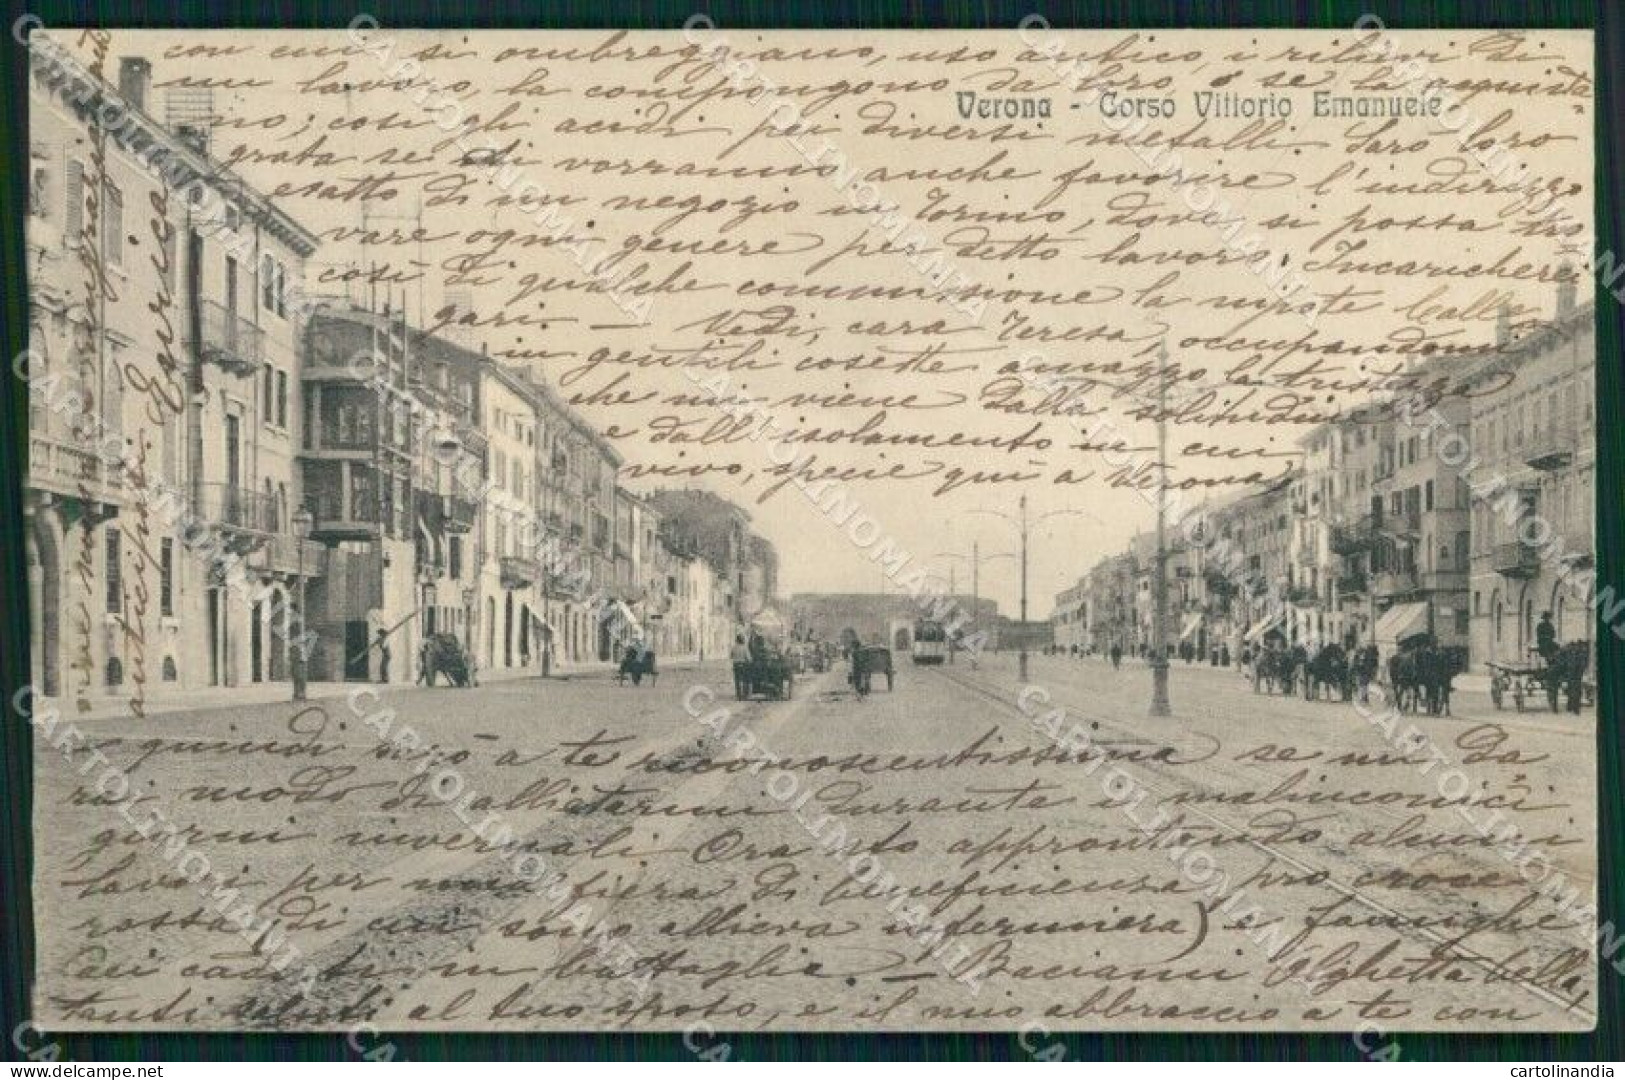 con cui si ombreggiano, uso antico, i rilievi di
un lavoro, la compongono da loro o se la acquista-
Verona - Corso Vittorio Emanuele
no; così gli acidi pei diversi metalli. Sarò loro
grata se di vorranno anche favorire l'indirizzo
esatto di un negozio in Torino, dove si possa tro
vare ogni genere per detto lavoro. Incaricherei
così di qualche commissione la nipote Calle
gari. — Vedi, cara Teresa, occupandomi
in gentili cosette amazzo la tristezza
che mi viene dalla solitudine
e dall'isolamento in cui
vivo, specie quì a Verona
e quindi sarò a te riconoscentissima se mi da
rai modo di allietarmi durante i malinconici
giorni invernali. Ora sto approntando alcuni
lavori per una fiera di beneficienza pro croce
rossa (di cui sono allieva infermiera) e famiglie
dei caduti in battaglie. — Baciami Olghetta bella,
tanti saluti al tuo sposo, e il mio abbraccio a te con
ringraziamenti
anticipati. Enrica
CARTOLINOMANIA
cartolinandia